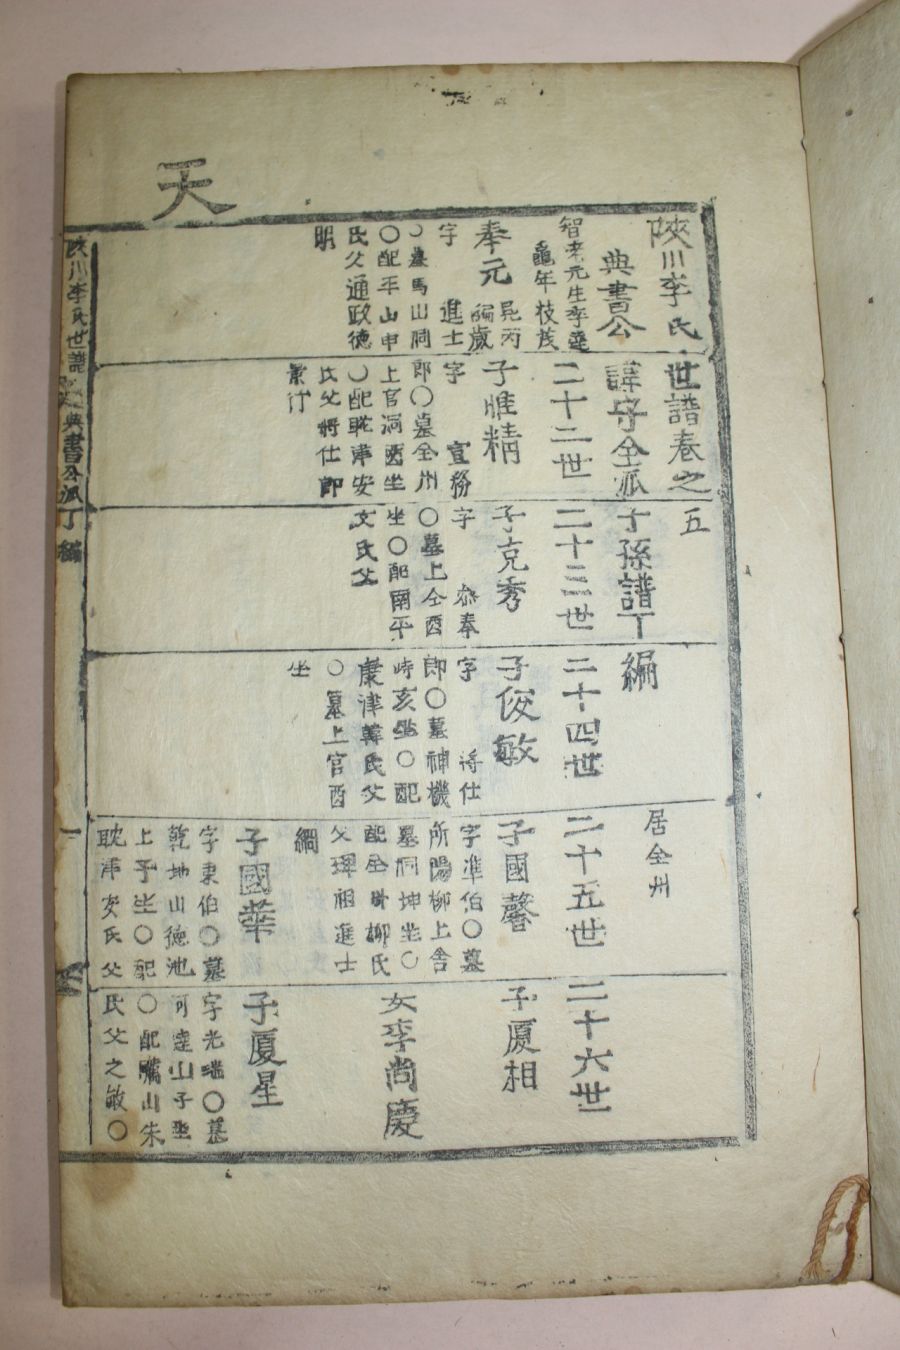 天
陜川李氏世譜卷之五
典書公諱守全派子孫譜丁編
居全州
智老元生李達
龜年枝茂
二十二世
二十三世
二十四世
二十五世
二十六世
奉元
字 進士
○墓馬山洞
○配平山申
氏父通政德
明
子惟精
字 宣務
郎○墓全州
上官洞酉坐
○配耽津安
氏父將仕郎
景行
子克秀
字 參奉
○墓上仝酉
坐○配南平
文氏父
子俊敏
字 將仕
郎○墓神機
峙亥坐○配
康津韓氏父
○墓上官酉
坐
子國馨
字準伯○墓
所陽柳上舍
墓洞坤坐○
配全州柳氏
父瑾祖進士
綱
子國華
字東伯○墓
乾地山德池
上子坐○配
耽津安氏父
子厦相
女李尚慶
子厦星
字光瑞○墓
○配
氏父之敏○
陜川李氏世譜 卷之五 典書公派丁編
一